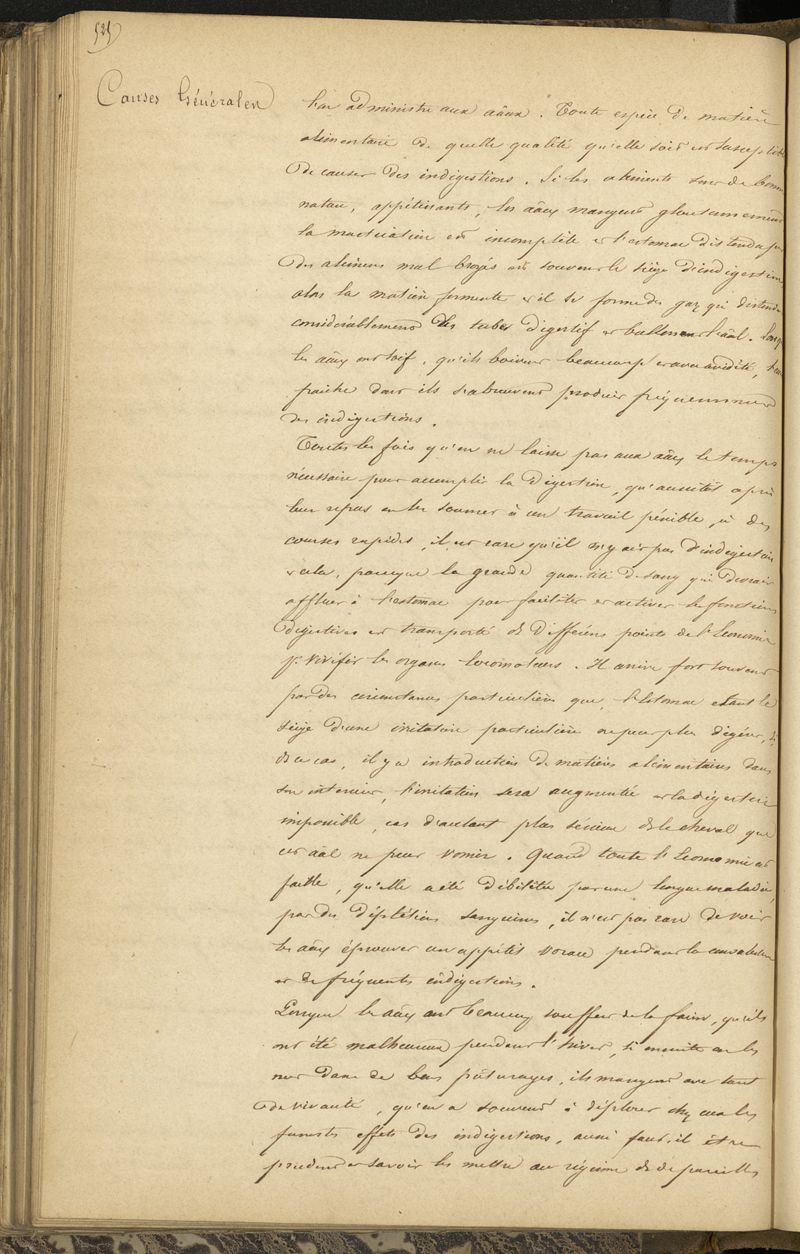 525
Causes Générales
l'on administre aux aãux. Toute espèce de matière
alimentaire de quelle qualité qu'elle soit est susceptible
de causer des indigestions. Si les aliments sont de bonne
nature, appétissants, les aãux mangent gloutonnement
la mastication est incomplète et l'estomac distendu par
des alimens mal broyés est souvent le siège d'indigestion
alors la matière fermente et il se forme des gaz qui distendent
considérablement les tubes digestif et ballonnent l'aãl. Lorsque
les aãux ont soif, qu'ils boivent beaucoup et avec avidité, l'eau
fraiche dont ils s'abreuvent produit fréquemment
des indigestions.
Toutes les fois qu'on ne laisse pas aux aãux le temps
nécessaire pour accomplir la digestion, qu'aussitôt après
leur repas on les soumet à un travail pénible, à des
courses rapides, il est rare qu'il n'y ait pas d'indigestion
et cela, parceque la grande quantité de sang qui devrait
affluer à l'estomac pour faciliter et activer les fonctions
digestives est transporté ds différens points de l'économie
pr vivifier les organes locomoteurs. Il arrive fort souvent
par des circonstances particulières que, l'estomac étant le
siège d'une irritation particulière ne peut plus digérer, si
ds ce cas, il y a introduction de matières alimentaires dans
son intérieur, l'irritation sera augmentée et la digestion
impossible, cas d'autant plus sérieux ds le cheval que
cet aãl ne peut vomir. Quand toute l'économie est
faible, qu'elle a été débilitée par une longue maladie,
par des déplétions sanguines, il n'est pas rare de voir
les aãux éprouver un appétit vorace pendant la convalescence
et de fréquentes indigestions.
Lorsque les aãux ont beaucoup souffert de la faim, qu'ils
ont été malheureux pendant l'hiver, si ensuite on les
met dans de bons pâturages, ils mangent avec tant
de vivacité, qu'on a souvent à déplorer chez eux les
funestes effets des indigestions, aussi faut-il être
prudent et savoir les mettre au régime ds de pareilles